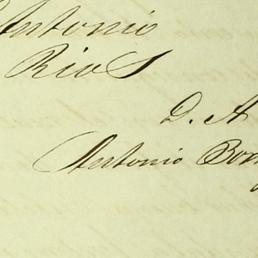 Antonio
Rios
D. A
Antonio Bon